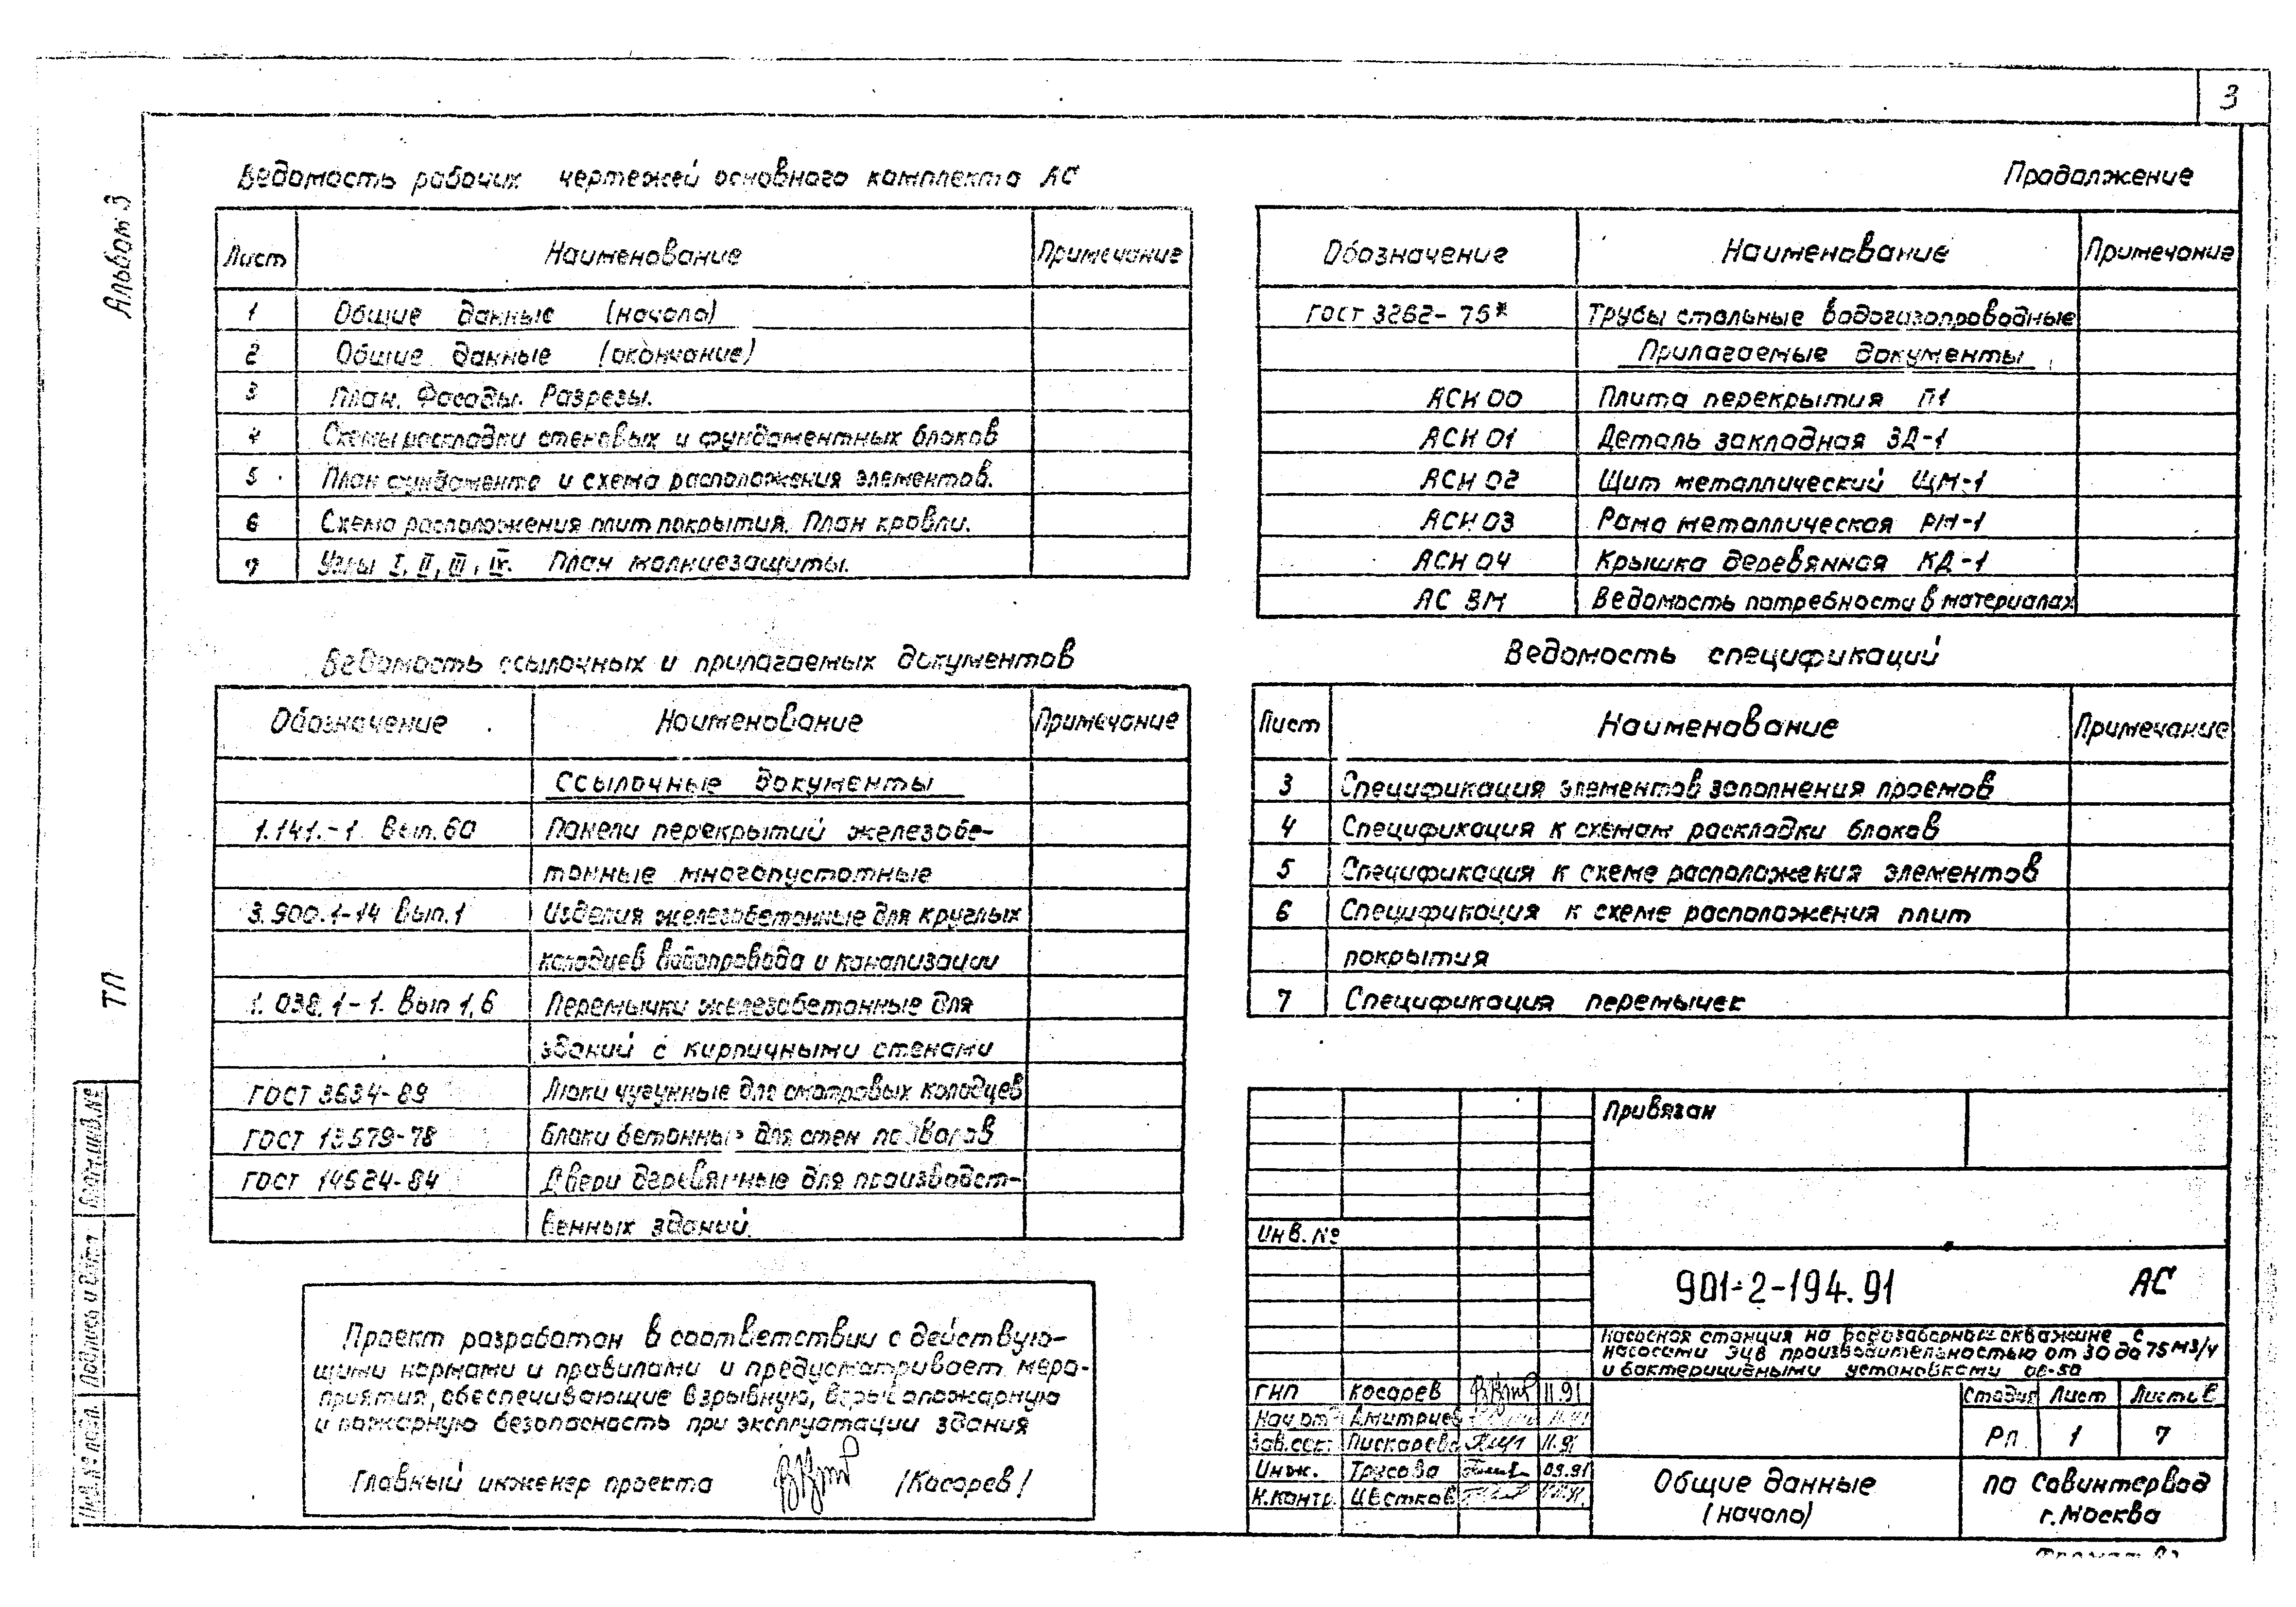 3
Альбом 3
ТП
Ведомость рабочих чертежей основного комплекта АС
Лист Наименование Примечание
1 Общие данные (начало)
2 Общие данные (окончание)
3 План. Фасады. Разрезы.
4 Схемы раскладки стеновых и фундаментных блоков
5 План фундамента и схема расположения элементов.
6 Схема расположения плит покрытия. План кровли.
7 Узлы I, II, III, IV. План молниезащиты.
Ведомость ссылочных и прилагаемых документов
Обозначение Наименование Примечание
Ссылочные документы
1.141.-1 Вып. 60 Панели перекрытий железобе-
тонные многопустотные
3.900.1-14 Вып.1 Изделия железобетонные для круглых
колодцев водопровода и канализации
1.038.1-1. Вып 1,6 Перемычки железобетонные для
зданий с кирпичными стенами
ГОСТ 3634-89 Люки чугунные для смотровых колодцев
ГОСТ 13579-78 Блоки бетонные для стен подвалов
ГОСТ 14624-84 Двери деревянные для производст-
венных зданий.
Проект разработан в соответствии с действую-
щими нормами и правилами и предусматривает меро-
приятия, обеспечивающие взрывную, взрывопожарную
и пожарную безопасность при эксплуатации здания
Главный инженер проекта /Косарев/
Продолжение
Обозначение Наименование Примечание
ГОСТ 3262-75* Трубы стальные водогазопроводные
Прилагаемые документы
АСИ 00 Плита перекрытия П1
АСИ 01 Деталь закладная ЗД-1
АСИ 02 Щит металлический ЩМ-1
АСИ 03 Рама металлическая РМ-1
АСИ 04 Крышка деревянная КД-1
АС ВМ Ведомость потребности в материалах
Ведомость спецификаций
Лист Наименование Примечание
3 Спецификация элементов заполнения проемов
4 Спецификация к схемам раскладки блоков
5 Спецификация к схеме расположения элементов
6 Спецификация к схеме расположения плит
покрытия
7 Спецификация перемычек
Привязан
Инв. №
901-2-194.91 АС
Насосная станция на водозаборной скважине с
насосами ЭЦВ производительностью от 30 до 75 м3/ч
и бактерицидными установками ОВ-50
ГИП Косарев 11.91
Нач. отд Дмитриев
Зав. сек. Пискарева 11.91
Инж. Трусова 09.91
Н.контр. Цветков
Стадия Лист Листов
РП 1 7
Общие данные
(начало)
ПО Совинтервод
г. Москва
Инв. № подл. Подпись и дата Взам. инв. №